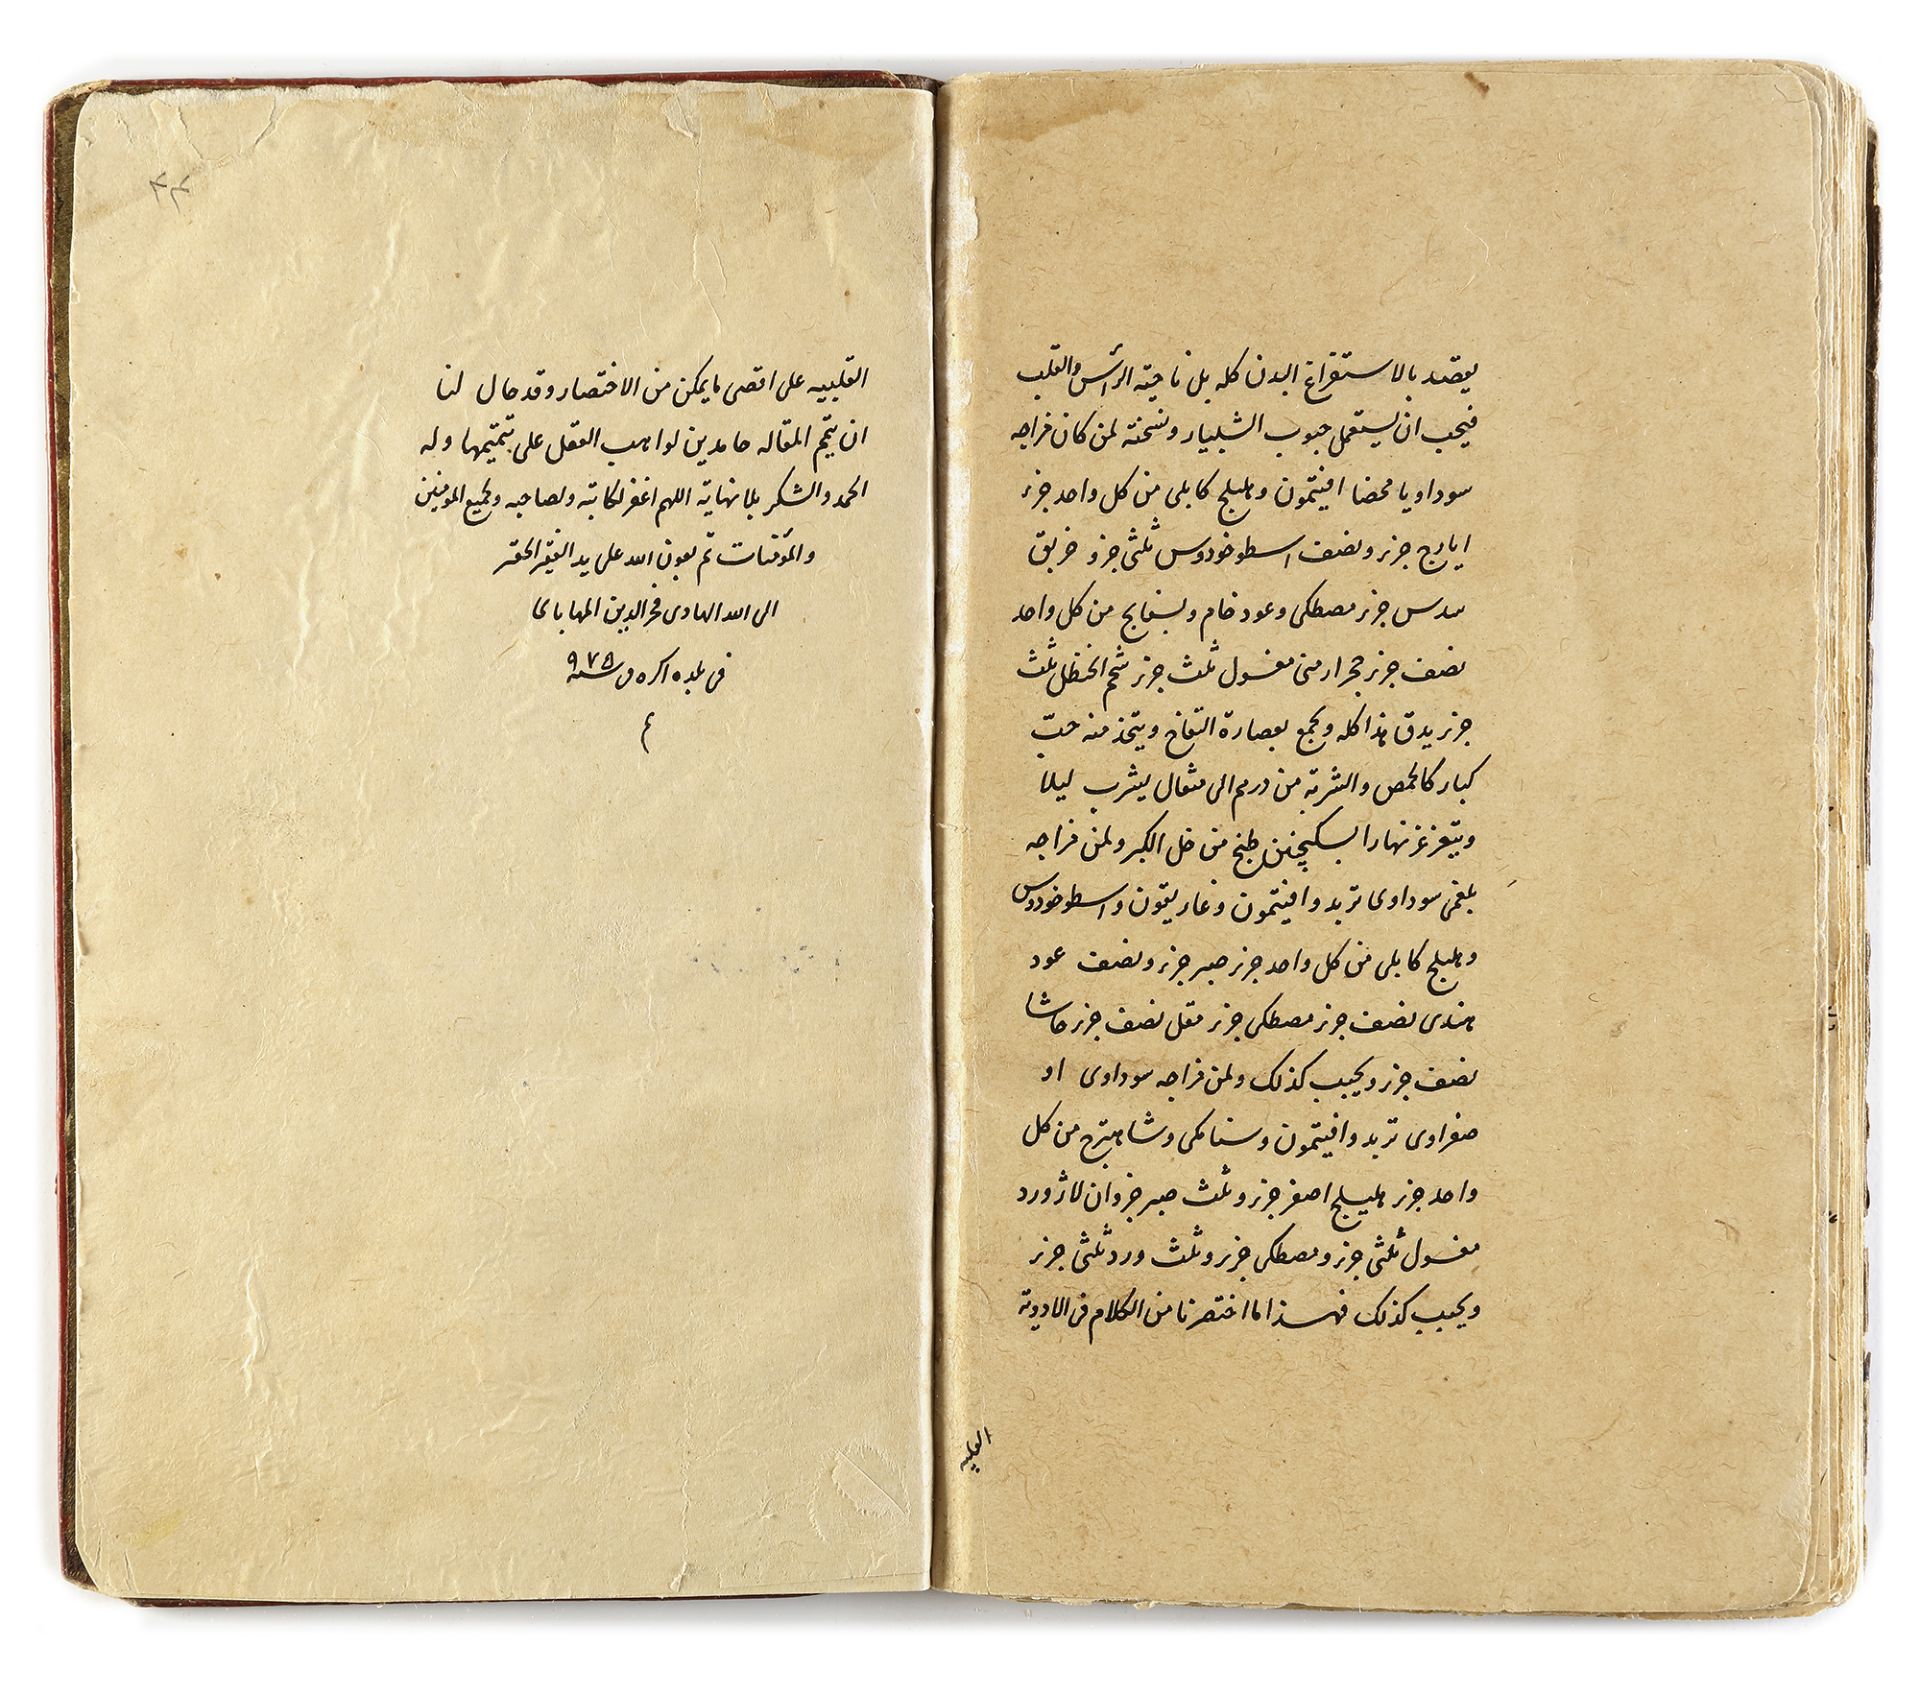 يقصد بالاستفراغ البدن كله بل ناحية الرأس والقلب
فيجب ان يستعمل حبوب الشبيار ونسخته لمن كان مزاجه
سوداويا محضا افيتمون وهليلج كابلى من كل واحد جزء
ايارج جزء ونصف اسطوخودوس ثلثى جزو خربق
سدس جزء مصطكى وعود خام وبسفايج من كل واحد
نصف جزء حجر ارمنى مغسول ثلث جزء شحم الحنظل ثلث
جزء يدق هذا كله ويجمع بعصارة التفاح ويتخذ منه حبّ
كبار كالحمص والشربة من درهم الى مثقال يشرب ليلا
ويتغرغر نهارا بسكنجبين طبخ من خل الكبر ولمن مزاجه
بلغمى سوداوى تربد وافيتمون وغاريقون واسطوخودوس
وهليلج كابلى من كل واحد جزء صبر جزء ونصف عود
هندى نصف جزء مصطكى جزء مقل نصف جزء حاشا
نصف جزء ويحبب كذلك ولمن مزاجه سوداوى او
صفراوى تربد وافيتمون وسنامكى وشاهترج من كل
واحد جزء هليلج اصفر جزء وثلث صبر جزوان لاژورد
مغسول ثلثى جزء ومصطكى جزء وثلث ورد ثلثى جزء
ويحبب كذلك فهذا ما اختصرنا من الكلام فى الادوية
القلبيه
القلبيه على اقصى ما يمكن من الاختصار وقد حال لنا
ان يتم المقاله حامدين لواهب العقل على تتميمها وله
الحمد والشكر بلا نهاية اللهم اغفر لكاتبه ولصاحبه ولجميع المومنين
والمؤمنات تم بعون الله على يد الفقير الحقير
الى الله الهادى فخر الدين المهابادى
فى بلده اكره فى سنه ٩٧٥
م